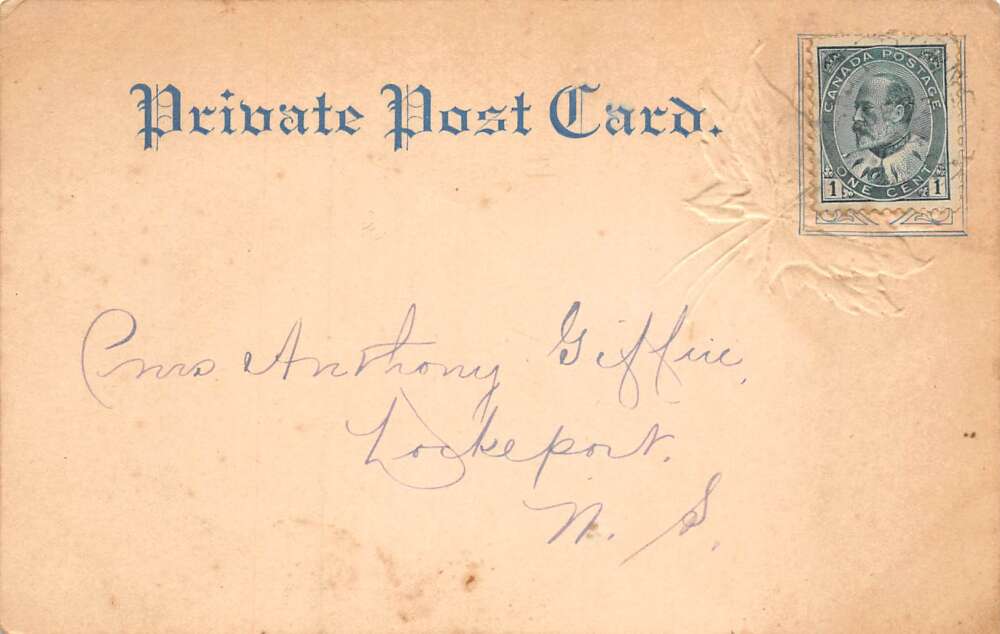 Private Post Card.
CANADA POSTAGE
ONE CENT
1 1
Mrs Anthony Giffin,
Lockeport.
N. S.